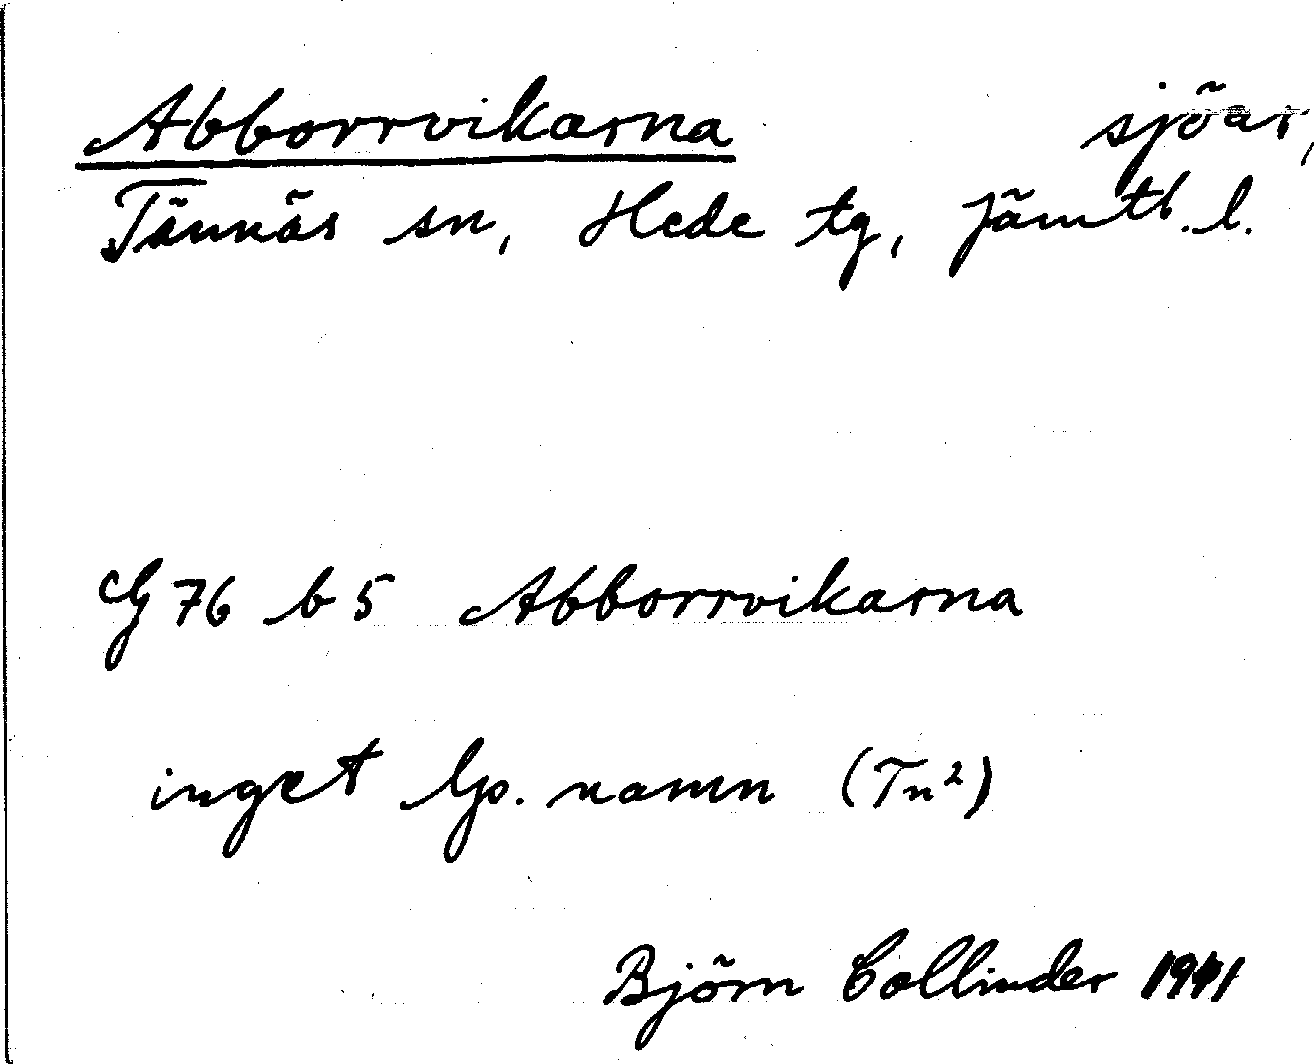 Abborrvikarna sjöar,
Tännäs sn, Hede tg, Jämtl. l.
G 76 b 5 Abborrvikarna
inget lp. namn (Tn²)
Björn Collinder 1941